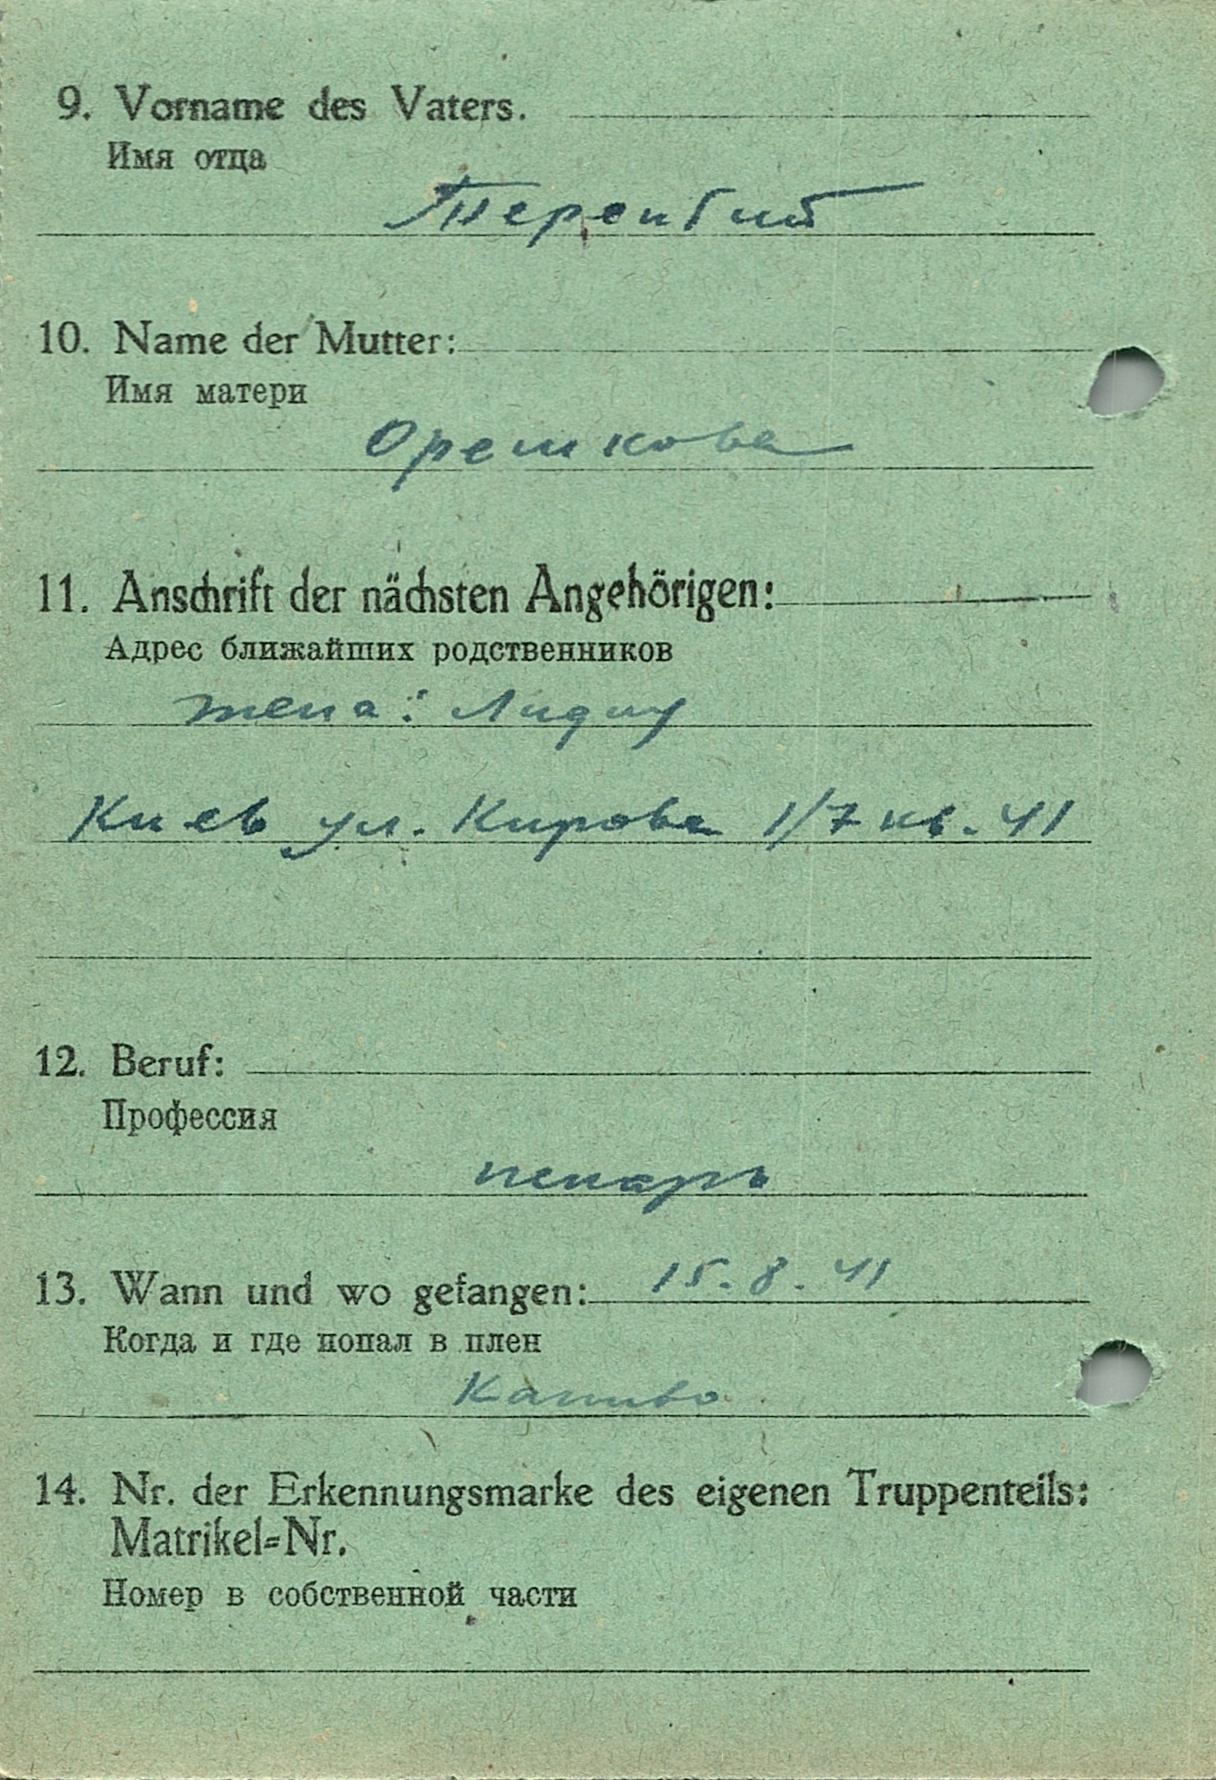 9. Vorname des Vaters.
Имя отца
10. Name der Mutter:
Имя матери
Орешкова
11. Anschrift der nächsten Angehörigen:
Адрес ближайших родственников
жена: Лидия
Киев ул. Кирова 1/7 кв. 41
12. Beruf:
Профессия
пекарь
13. Wann und wo gefangen: 15.8.41
Когда и где попал в плен
14. Nr. der Erkennungsmarke des eigenen Truppenteils:
Matrikel=Nr.
Номер в собственной части